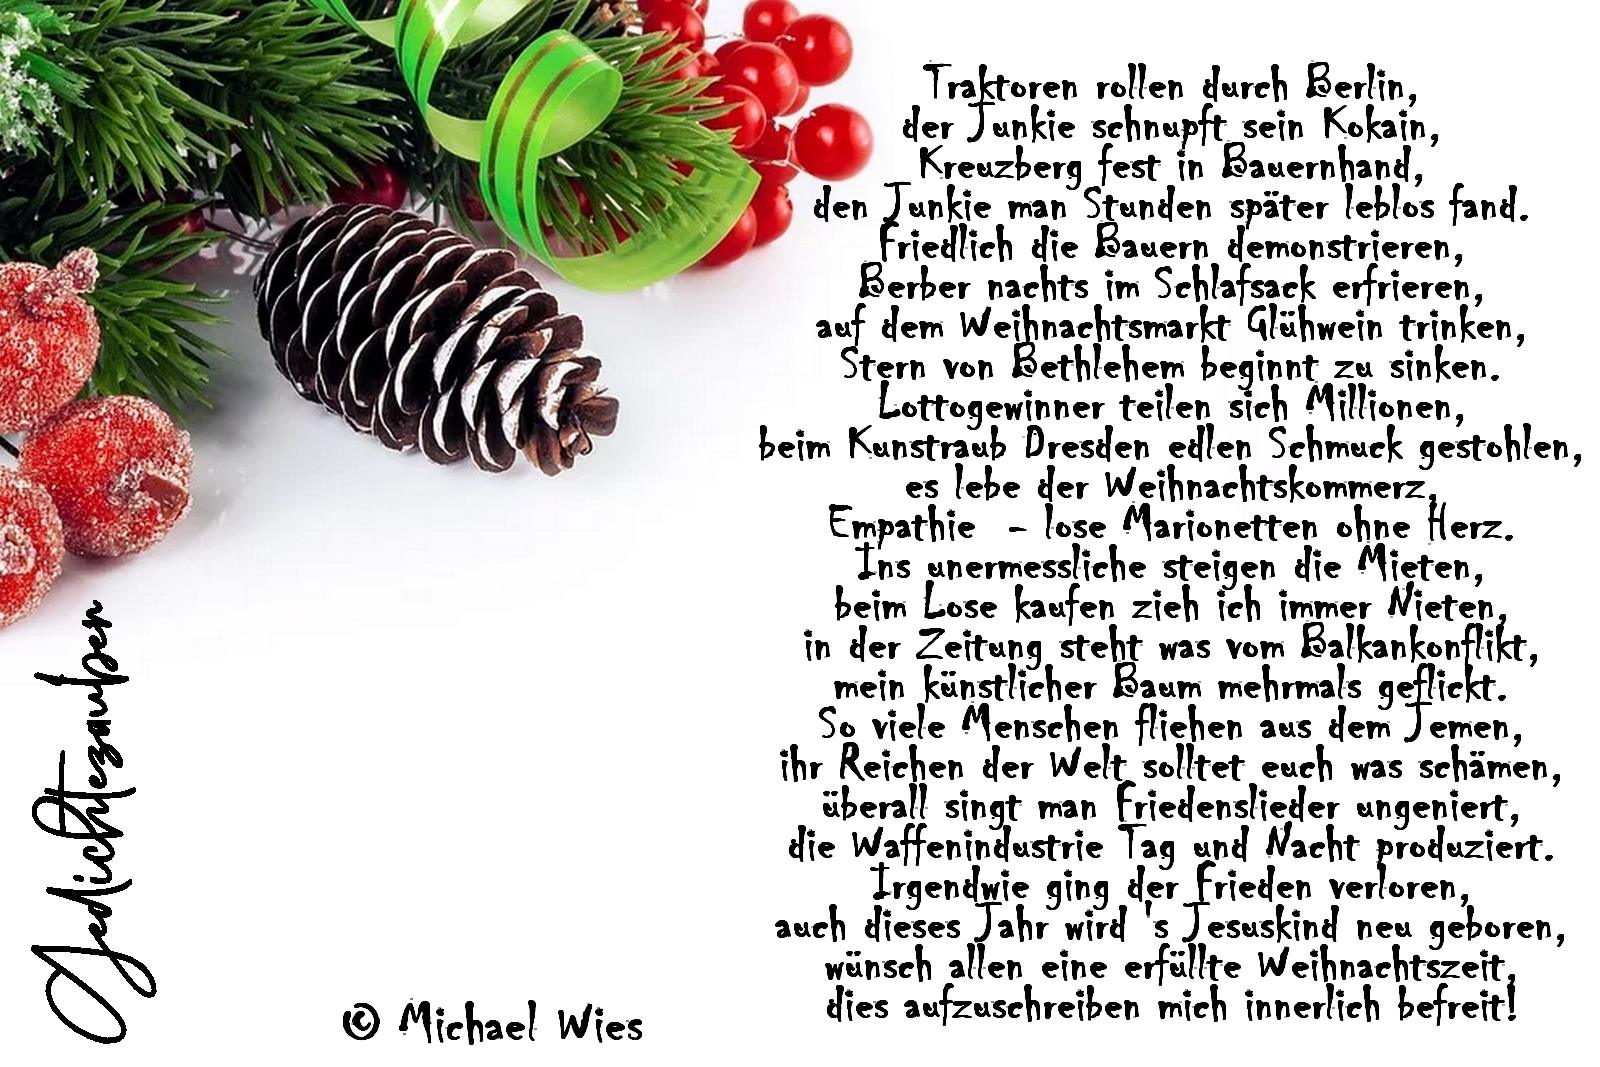 Traktoren rollen durch Berlin,
der Junkie schnupft sein Kokain,
Kreuzberg fest in Bauernhand,
den Junkie man Stunden später leblos fand.
Friedlich die Bauern demonstrieren,
Berber nachts im Schlafsack erfrieren,
auf dem Weihnachtsmarkt Glühwein trinken,
Stern von Bethlehem beginnt zu sinken.
Lottogewinner teilen sich Millionen,
beim Kunstraub Dresden edlen Schmuck gestohlen,
es lebe der Weihnachtskommerz,
Empathie - lose Marionetten ohne Herz.
Ins unermessliche steigen die Mieten,
beim Lose kaufen zieh ich immer Nieten,
in der Zeitung steht was vom Balkankonflikt,
mein künstlicher Baum mehrmals geflickt.
So viele Menschen fliehen aus dem Jemen,
ihr Reichen der Welt solltet euch was schämen,
überall singt man Friedenslieder ungeniert,
die Waffenindustrie Tag und Nacht produziert.
Irgendwie ging der Frieden verloren,
auch dieses Jahr wird 's Jesuskind neu geboren,
wünsch allen eine erfüllte Weihnachtszeit,
dies aufzuschreiben mich innerlich befreit!
Gedichtezauber
© Michael Wies